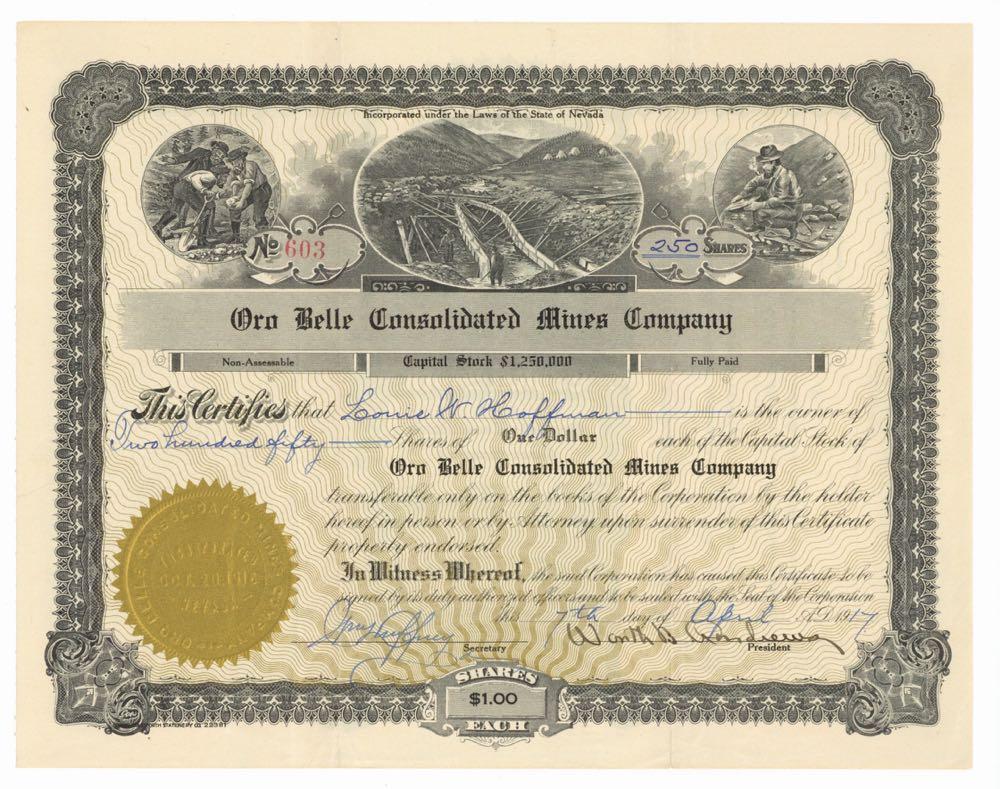 Incorporated under the Laws of the State of Nevada
No 603
250 Shares
Oro Belle Consolidated Mines Company
Non-Assessable
Capital Stock $1,250,000
Fully Paid
This Certifies that Louie W. Hoffman is the owner of
Two hundred fifty Shares of One Dollar each of the Capital Stock of
Oro Belle Consolidated Mines Company
transferable only on the books of the Corporation by the holder
hereof in person or by Attorney upon surrender of this Certificate
properly endorsed.
In Witness Whereof, the said Corporation has caused this Certificate to be
signed by its duly authorized officers and to be sealed with the Seal of the Corporation
this 7th day of April A.D. 1917
Worth B Andrews
Secretary
President
SHARES
$1.00
EACH
ORO BELLE CONSOLIDATED MINES
INCORPORATED
OCT. 20, 1916
NEVADA
STATIONERY CO. 22381